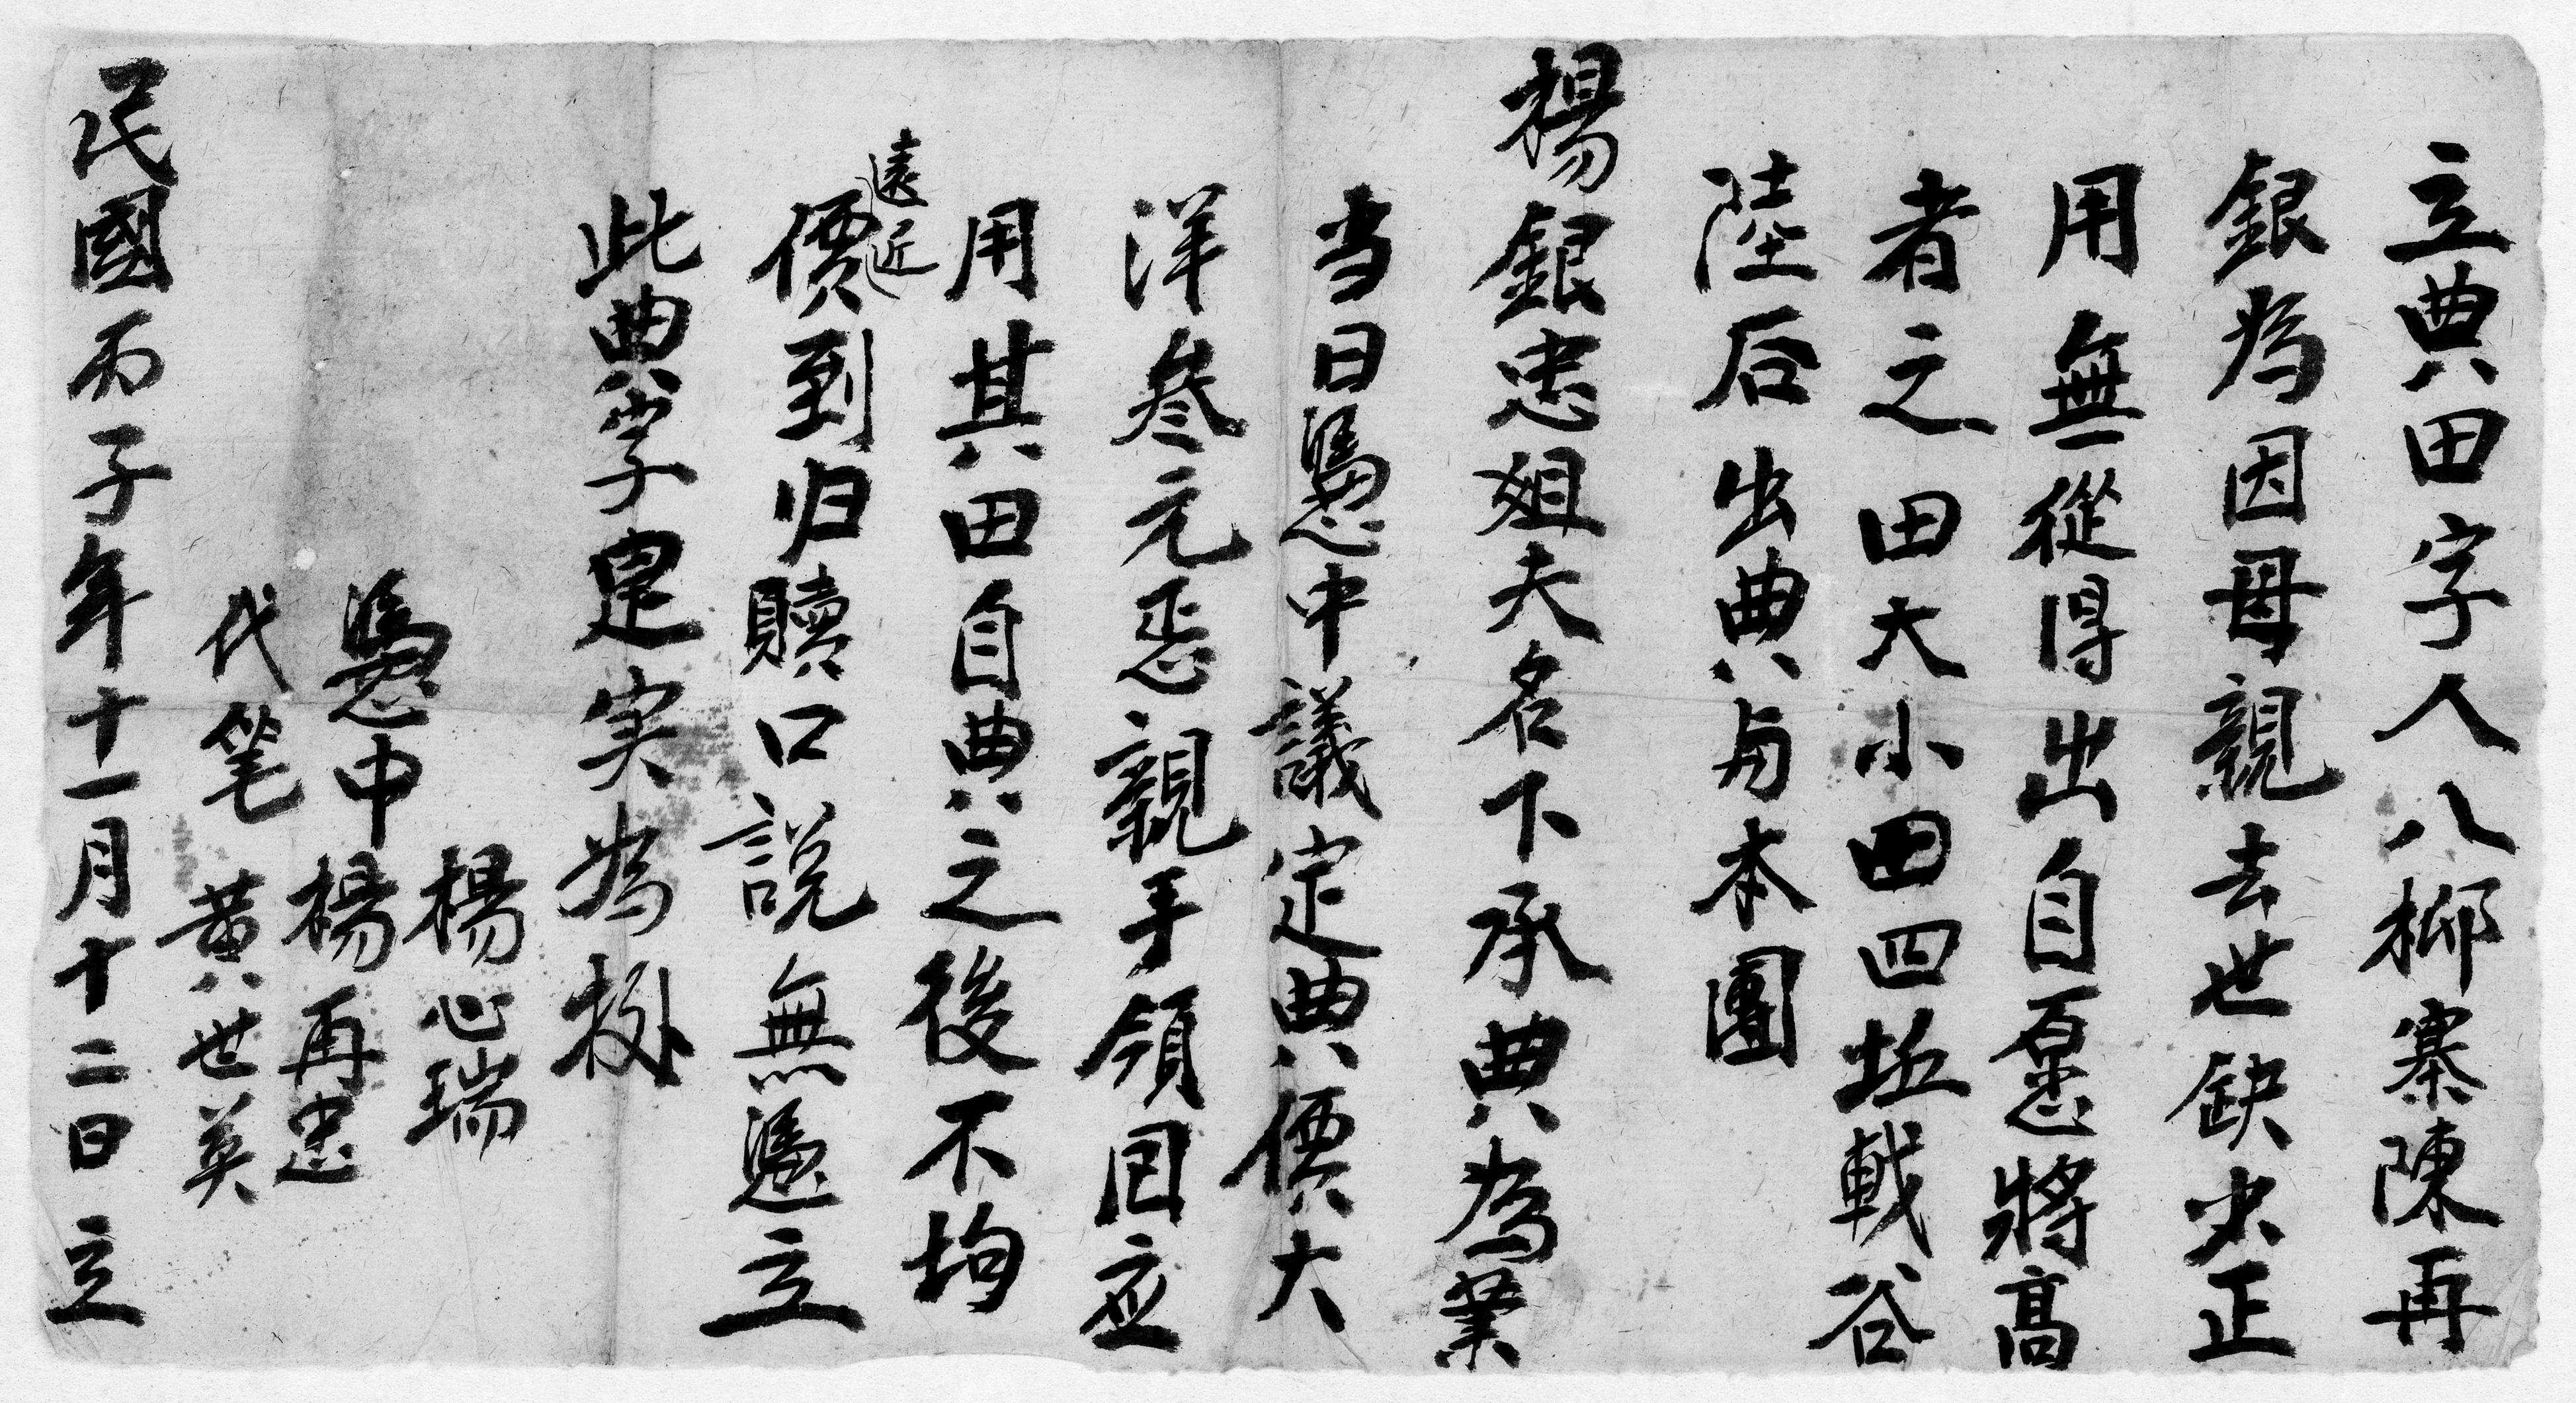 立典田字人八柳寨陳再
銀為因母親去世缺少正
用無從得出自愿將高
者之田大小田四坵戥谷
陸后出典与本團
楊銀忠姐夫名下承典為業
当日憑中議定典價大
洋叄元悉親手領回应
用其田自典之後不拘
遠近
價到归贖口説無憑立
此典字是实為據
憑中 楊心瑞
楊再忠
代笔 黄世英
民國丙子年十一月十二日立